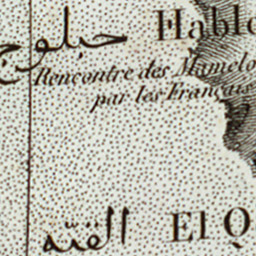 حبلوج Hablo
Rencontre des Mamelo
par les Français
القبّه El Q